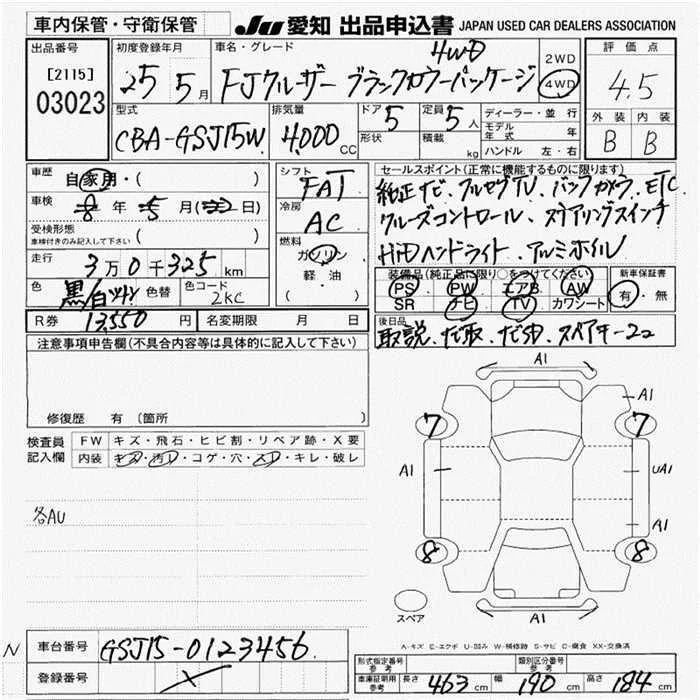 車内保管・守衛保管
JU 愛知 出品申込書 JAPAN USED CAR DEALERS ASSOCIATION
出品番号
[2115]
03023
初度登録年月
25 5月
車名・グレード
4WD
FJクルーザー ブラックカラーパッケージ
2WD
4WD
評価点
4.5
型式
CBA-GSJ15W
排気量
4000 CC
ドア 5
形状
定員 5人
積載 kg
ディーラー・並行
モデル年式 年
ハンドル 左・右
外装 内装
B B
車歴
自家用・( )
車検
8年 5月( 日)
受検形態
車検付きのみ記入して下さい ( )
走行
3万0千325km
色 黒/白ツートン 色替 色コード 2KC
シフト
FAT
冷房
AC
燃料
ガソリン
軽・油
( )
セールスポイント(正常に機能するものに限ります)
純正ナビ、フルセグTV、バックカメラ、ETC
クルーズコントロール、ステアリングスイッチ
HiDヘッドライト、アルミホイル
装備品(純正品に限り○をつけてください)
PS PW エアB AW
SR ナビ TV カワシート
新車保証書
有・無
R券 13,550円 名変期限 月 日
後日品
取説、ナビ取、ナビSD、スペアキー2コ
注意事項申告欄(不具合内容等は具体的に記入して下さい)
修復歴 有 〔箇所 〕
検査員記入欄
FW キズ・飛石・ヒビ割・リペア跡・X要
内装 キズ・汚レ・コゲ・穴・スレ・キレ・破レ
各AU
A1
A1
7 7
A1 UA1
A1
8 8
スペア
A1
A-キズ E-エクボ U-凹み W-補修跡 S-サビ C-腐食 XX-交換済
N
車台番号 GSJ15-0123456
登録番号
形式指定番号 参考
類別区分番号 参考
車庫証明用 参考 長さ 463cm 幅 190cm 高さ 184cm